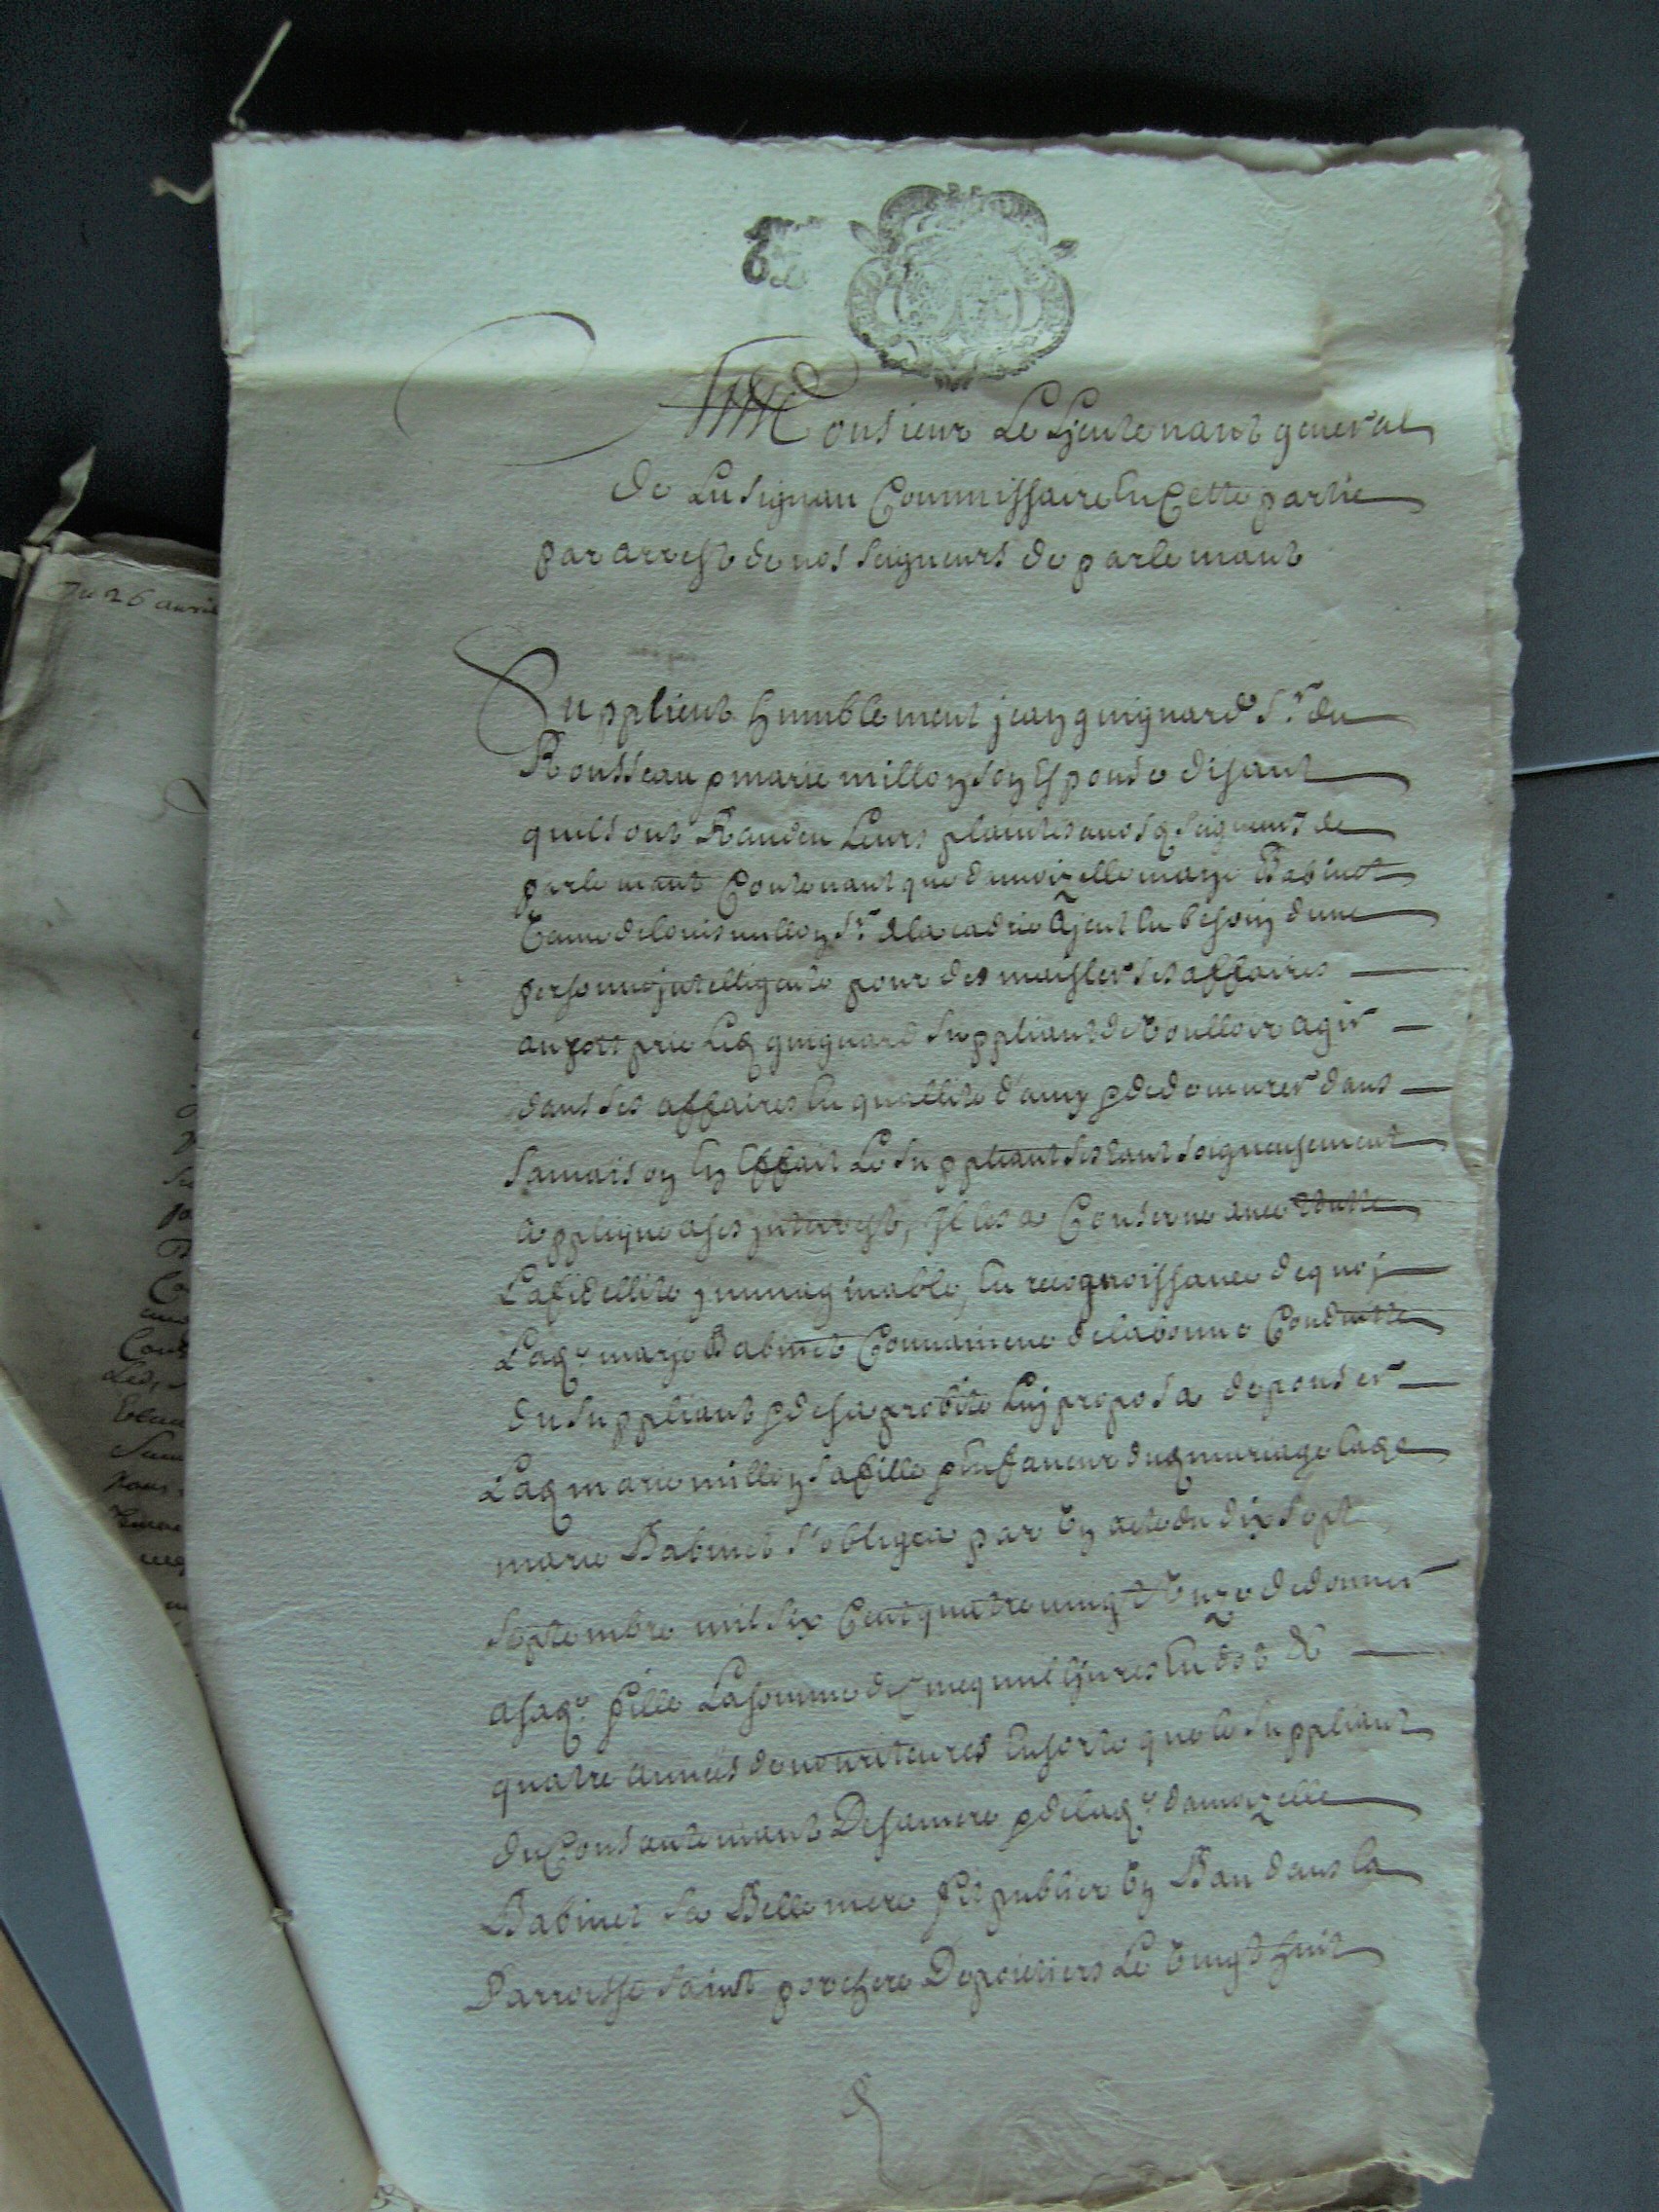 Du 26 auril
Monsieur Le Lieutenant general
de Lusignan Commissaire en Cette partie
par arrest de nos seigneurs de parlemant
Supplient humblement jean guignard Sr du
Rousseau & marie millon son Espouse disant
quils ont Randeu Leurs plaintes a nosd seigneurs de
parlemant Contenant que damoizelle marye Babinet
veuue de louis millon Sr de la cadrie ayent eu besoin dune
personne jntelligente pour desmesler ses affaires
auroit prie Led guignard suppliant de voulloir agir
dans ses affaires en quallite d'amy & de demeurer dans
sa maison En Effait Le suppliant sestant soigneusement
applique a ses jnterrest, jl les a Conserue auec toutte
La fidellite jmmaginable, en recognoissance de quoy
Lade marye Babinet Conuaincue de la bonne Conduitte
du suppliant & de sa probite Luy proposa depouser
Lad marie millon sa fille & en faueur dud mariage lade
marie Babinet s'obligea par vn acte du dix sept
septembre mil six Cent quatre uingt vnze de donner
a sade fille La somme de Cincq mil liures en dot &
quatre années de nouritures en sorte que le suppliant
du Consantemant De sa mere & de lade damoizelle
Babinet sa Belle mere fit publier vn Ban dans la
Parroisse saint porchere De poictiers Le vingt huit